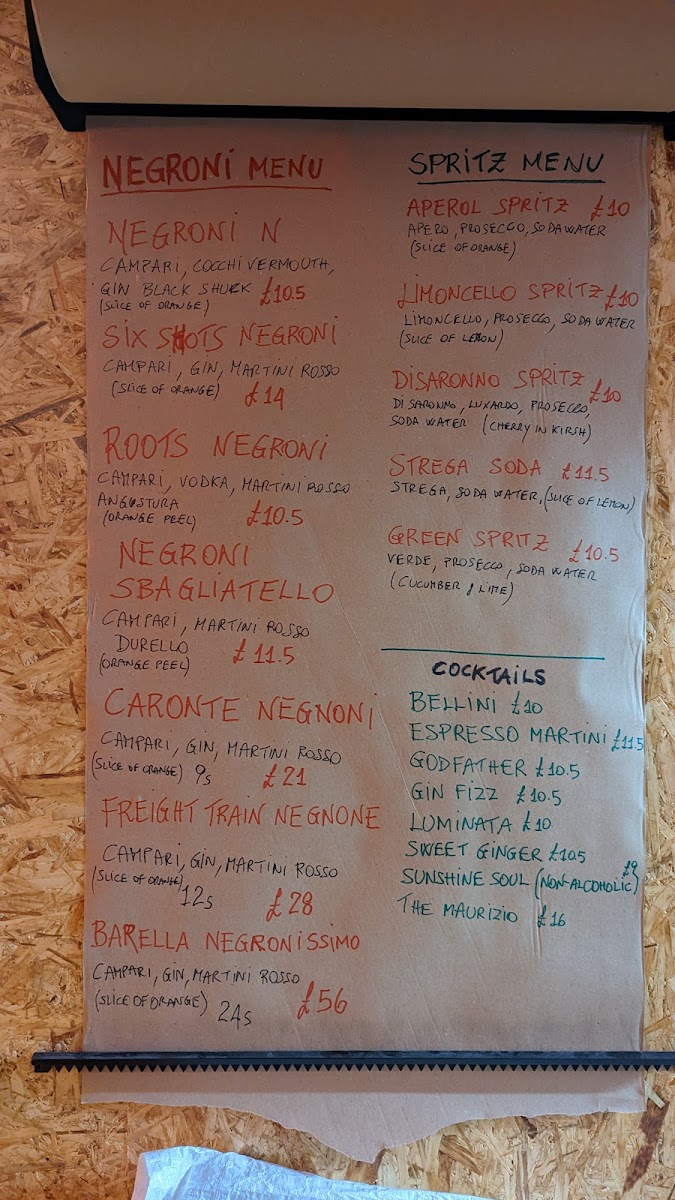 NEGRONI MENU
NEGRONI N
CAMPARI, COCCHI VERMOUTH,
GIN BLACK SHUCK £10.5
(SLICE OF ORANGE)
SIX SHOTS NEGRONI
CAMPARI, GIN, MARTINI ROSSO
(SLICE OF ORANGE) £14
ROOTS NEGRONI
CAMPARI, VODKA, MARTINI ROSSO
ANGUSTURA
(ORANGE PEEL) £10.5
NEGRONI
SBAGLIATELLO
CAMPARI, MARTINI ROSSO
DURELLO
(ORANGE PEEL) £11.5
CARONTE NEGNONI
CAMPARI, GIN, MARTINI ROSSO
(SLICE OF ORANGE) 9s £21
FREIGHT TRAIN NEGNONE
CAMPARI, GIN, MARTINI ROSSO
(SLICE OF ORANGE)
12s £28
BARELLA NEGRONISSIMO
CAMPARI, GIN, MARTINI ROSSO
(SLICE OF ORANGE) 24s £56
SPRITZ MENU
APEROL SPRITZ £10
APERO, PROSECCO, SODA WATER
(SLICE OF ORANGE)
LIMONCELLO SPRITZ £10
LIMONCELLO, PROSECCO, SODA WATER
(SLICE OF LEMON)
DISARONNO SPRITZ £10
DISARONNO, LUXARDO, PROSECCO,
SODA WATER (CHERRY IN KIRSH)
STREGA SODA £11.5
STREGA, SODA WATER, (SLICE OF LEMON)
GREEN SPRITZ £10.5
VERDE, PROSECCO, SODA WATER
(CUCUMBER & LIME)
COCKTAILS
BELLINI £10
ESPRESSO MARTINI £11.5
GODFATHER £10.5
GIN FIZZ £10.5
LUMINATA £10
SWEET GINGER £10.5
SUNSHINE SOUL (NON-ALCOHOLIC) £9
THE MAURIZIO £16